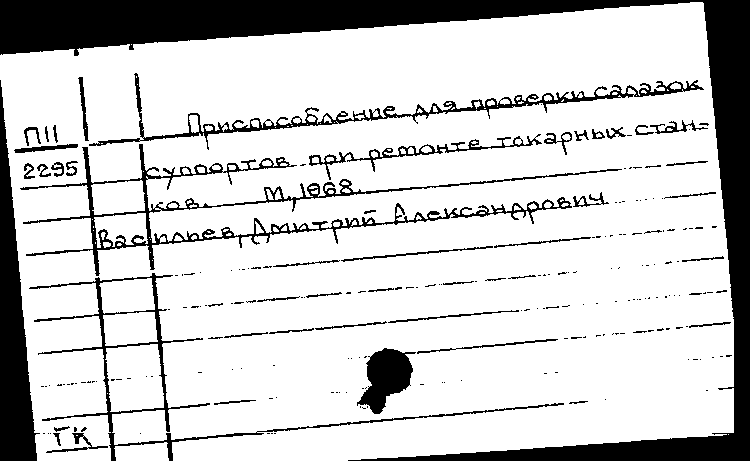 П11
2295
Приспособление для проверки салазок
суппортов при ремонте токарных стан=
ков. М., 1968.
Васильев, Дмитрий Александрович
ГК